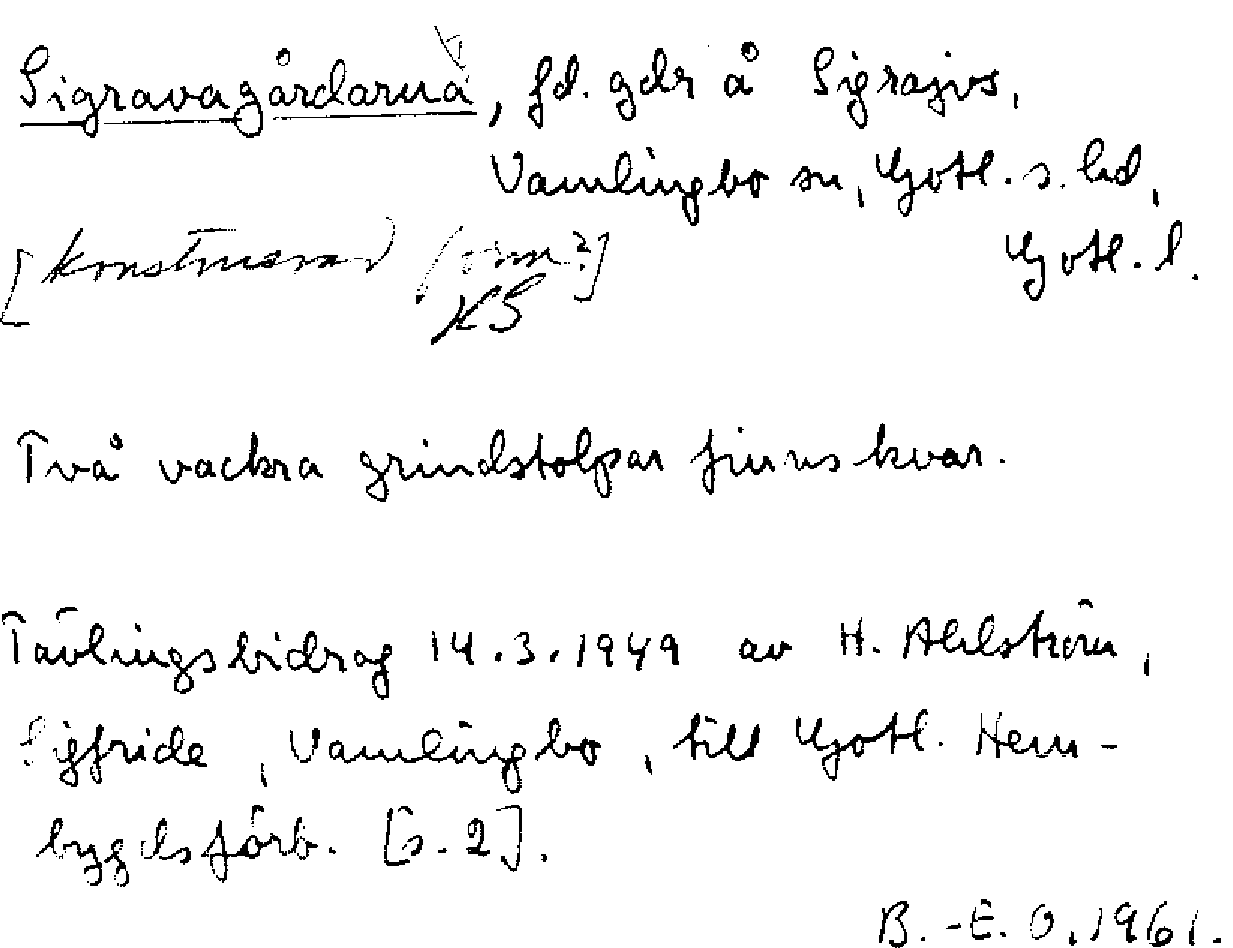 Sigravagårdarna, fd. gdr å Sigrajvs,
Vamlingbo sn, Gotl. s. hd,
Gotl. l.
[konstruerad form?]
KS
Två vackra grindstolpar finns kvar.
Tävlingsbidrag 14.3.1949 av H. Ahlström,
Sigfride, Vamlingbo, till Gotl. Hem-
bygdsförb. [s. 2].
B.-E. O. 1961.